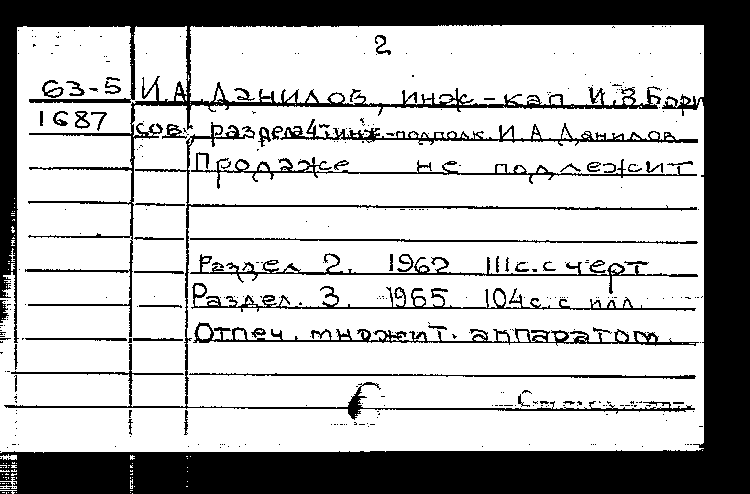 2
63-5 И.А. Данилов, инж-кап. И.В. Бори
1687 сов; раздела 4 инж-подполк. И.А. Данилов
Продаже не подлежит.
Раздел 2. 1962 111с. с черт
Раздел. 3. 1965. 104с. с илл.
Отпеч. множит. аппаратом.